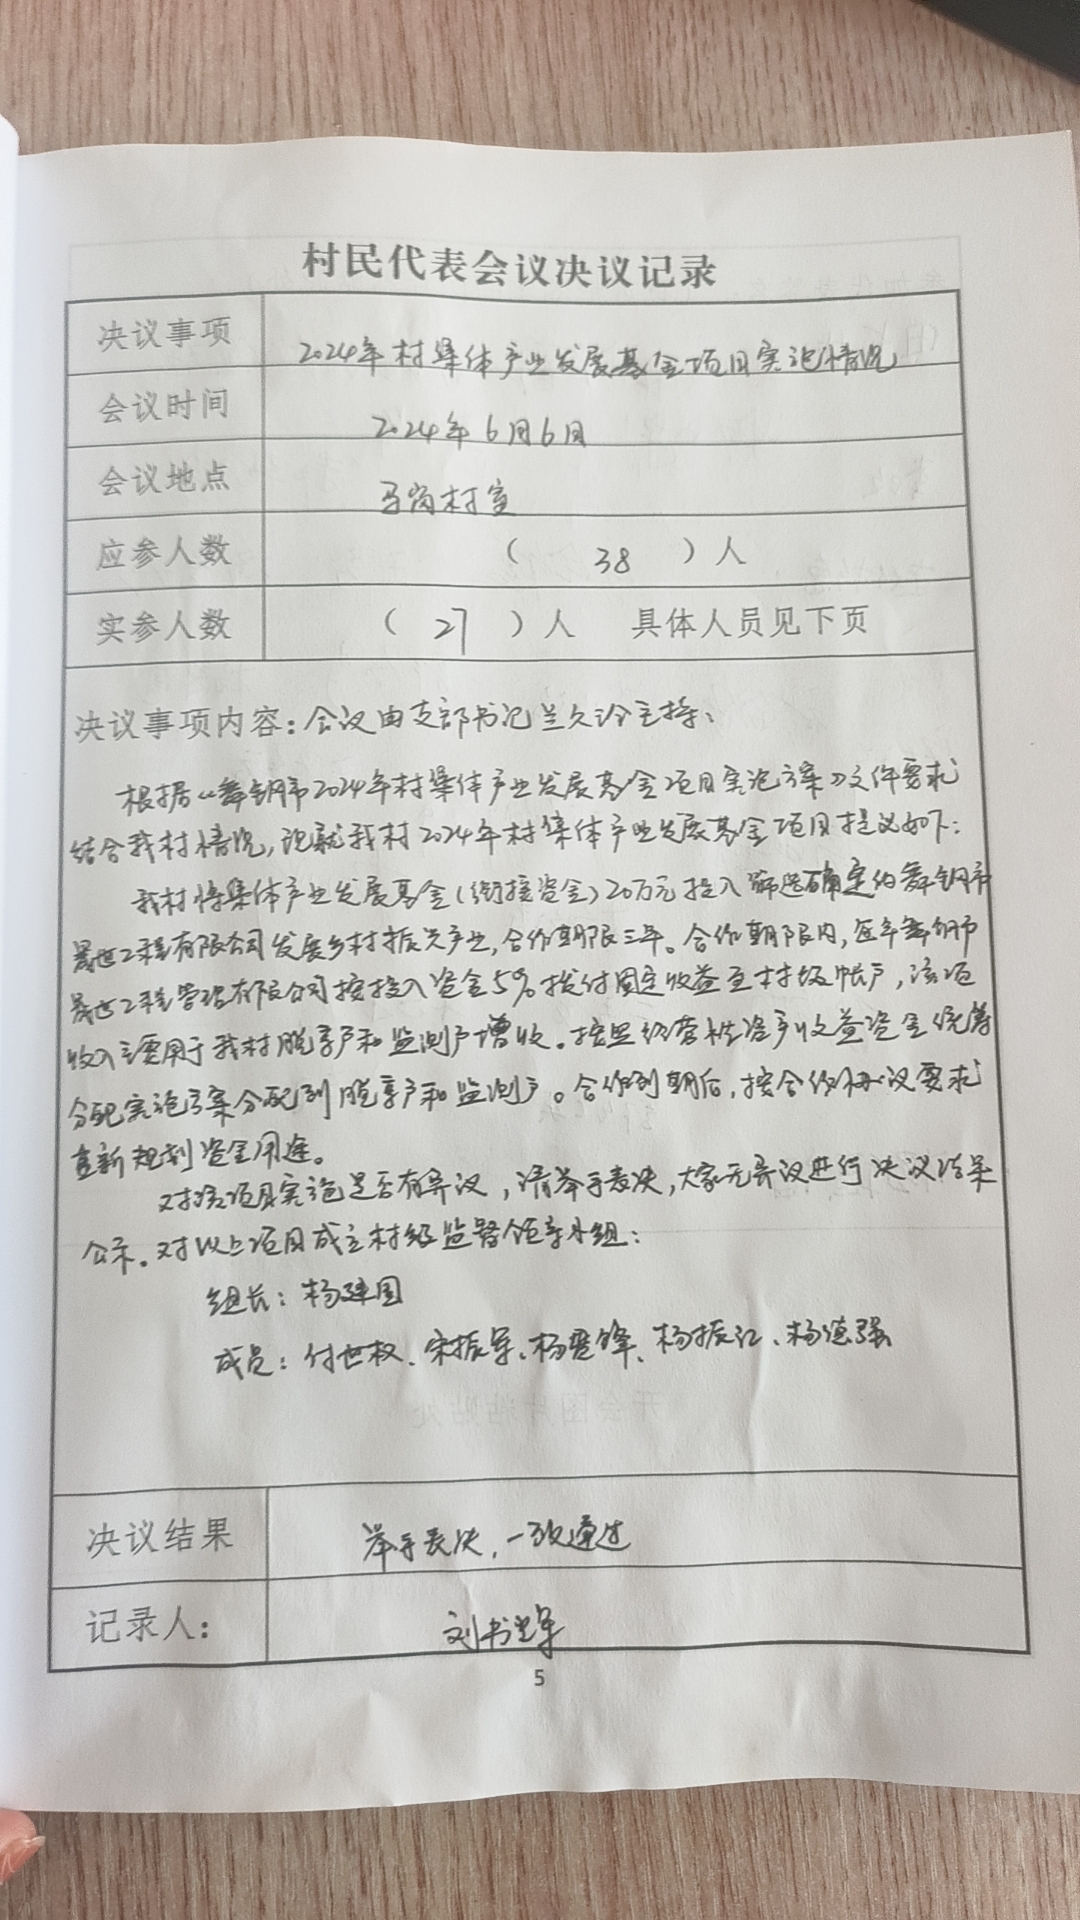 村民代表会议决议记录
决议事项 2024年村集体产业发展基金项目实施情况
会议时间 2024年6月6日
会议地点 马岗村室
应参人数 ( 38 ) 人
实参人数 ( 27 ) 人 具体人员见下页
决议事项内容：会议由支部书记兰久诊主持：
根据《舞钢市2024年村集体产业发展基金项目实施方案》文件要求
结合我村情况，现就我村2024年村集体产业发展基金项目提议如下：
我村将集体产业发展基金(衔接资金)20万元投入筛选确定的舞钢市
晟世工程有限公司发展乡村振兴产业，合作期限三年。合作期限内，每年舞钢市
晟世工程管理有限公司按投入资金5%拨付固定收益至村级帐户，该项
收入主要用于我村脱享户和监测户增收。按照经营性资产收益资金统筹
分配实施方案分配到脱享户和监测户。合作到期后，按合作协议要求
重新规划资金用途。
对该项目实施是否有异议，请举手表决，大家无异议进行决议结果
公示。对以上项目成立村级监督领导小组：
组长：杨建国
成员：付世权、宋振军、杨晋锋、杨振江、杨德强
决议结果 举手表决，一致通过
记录人： 刘书军
5